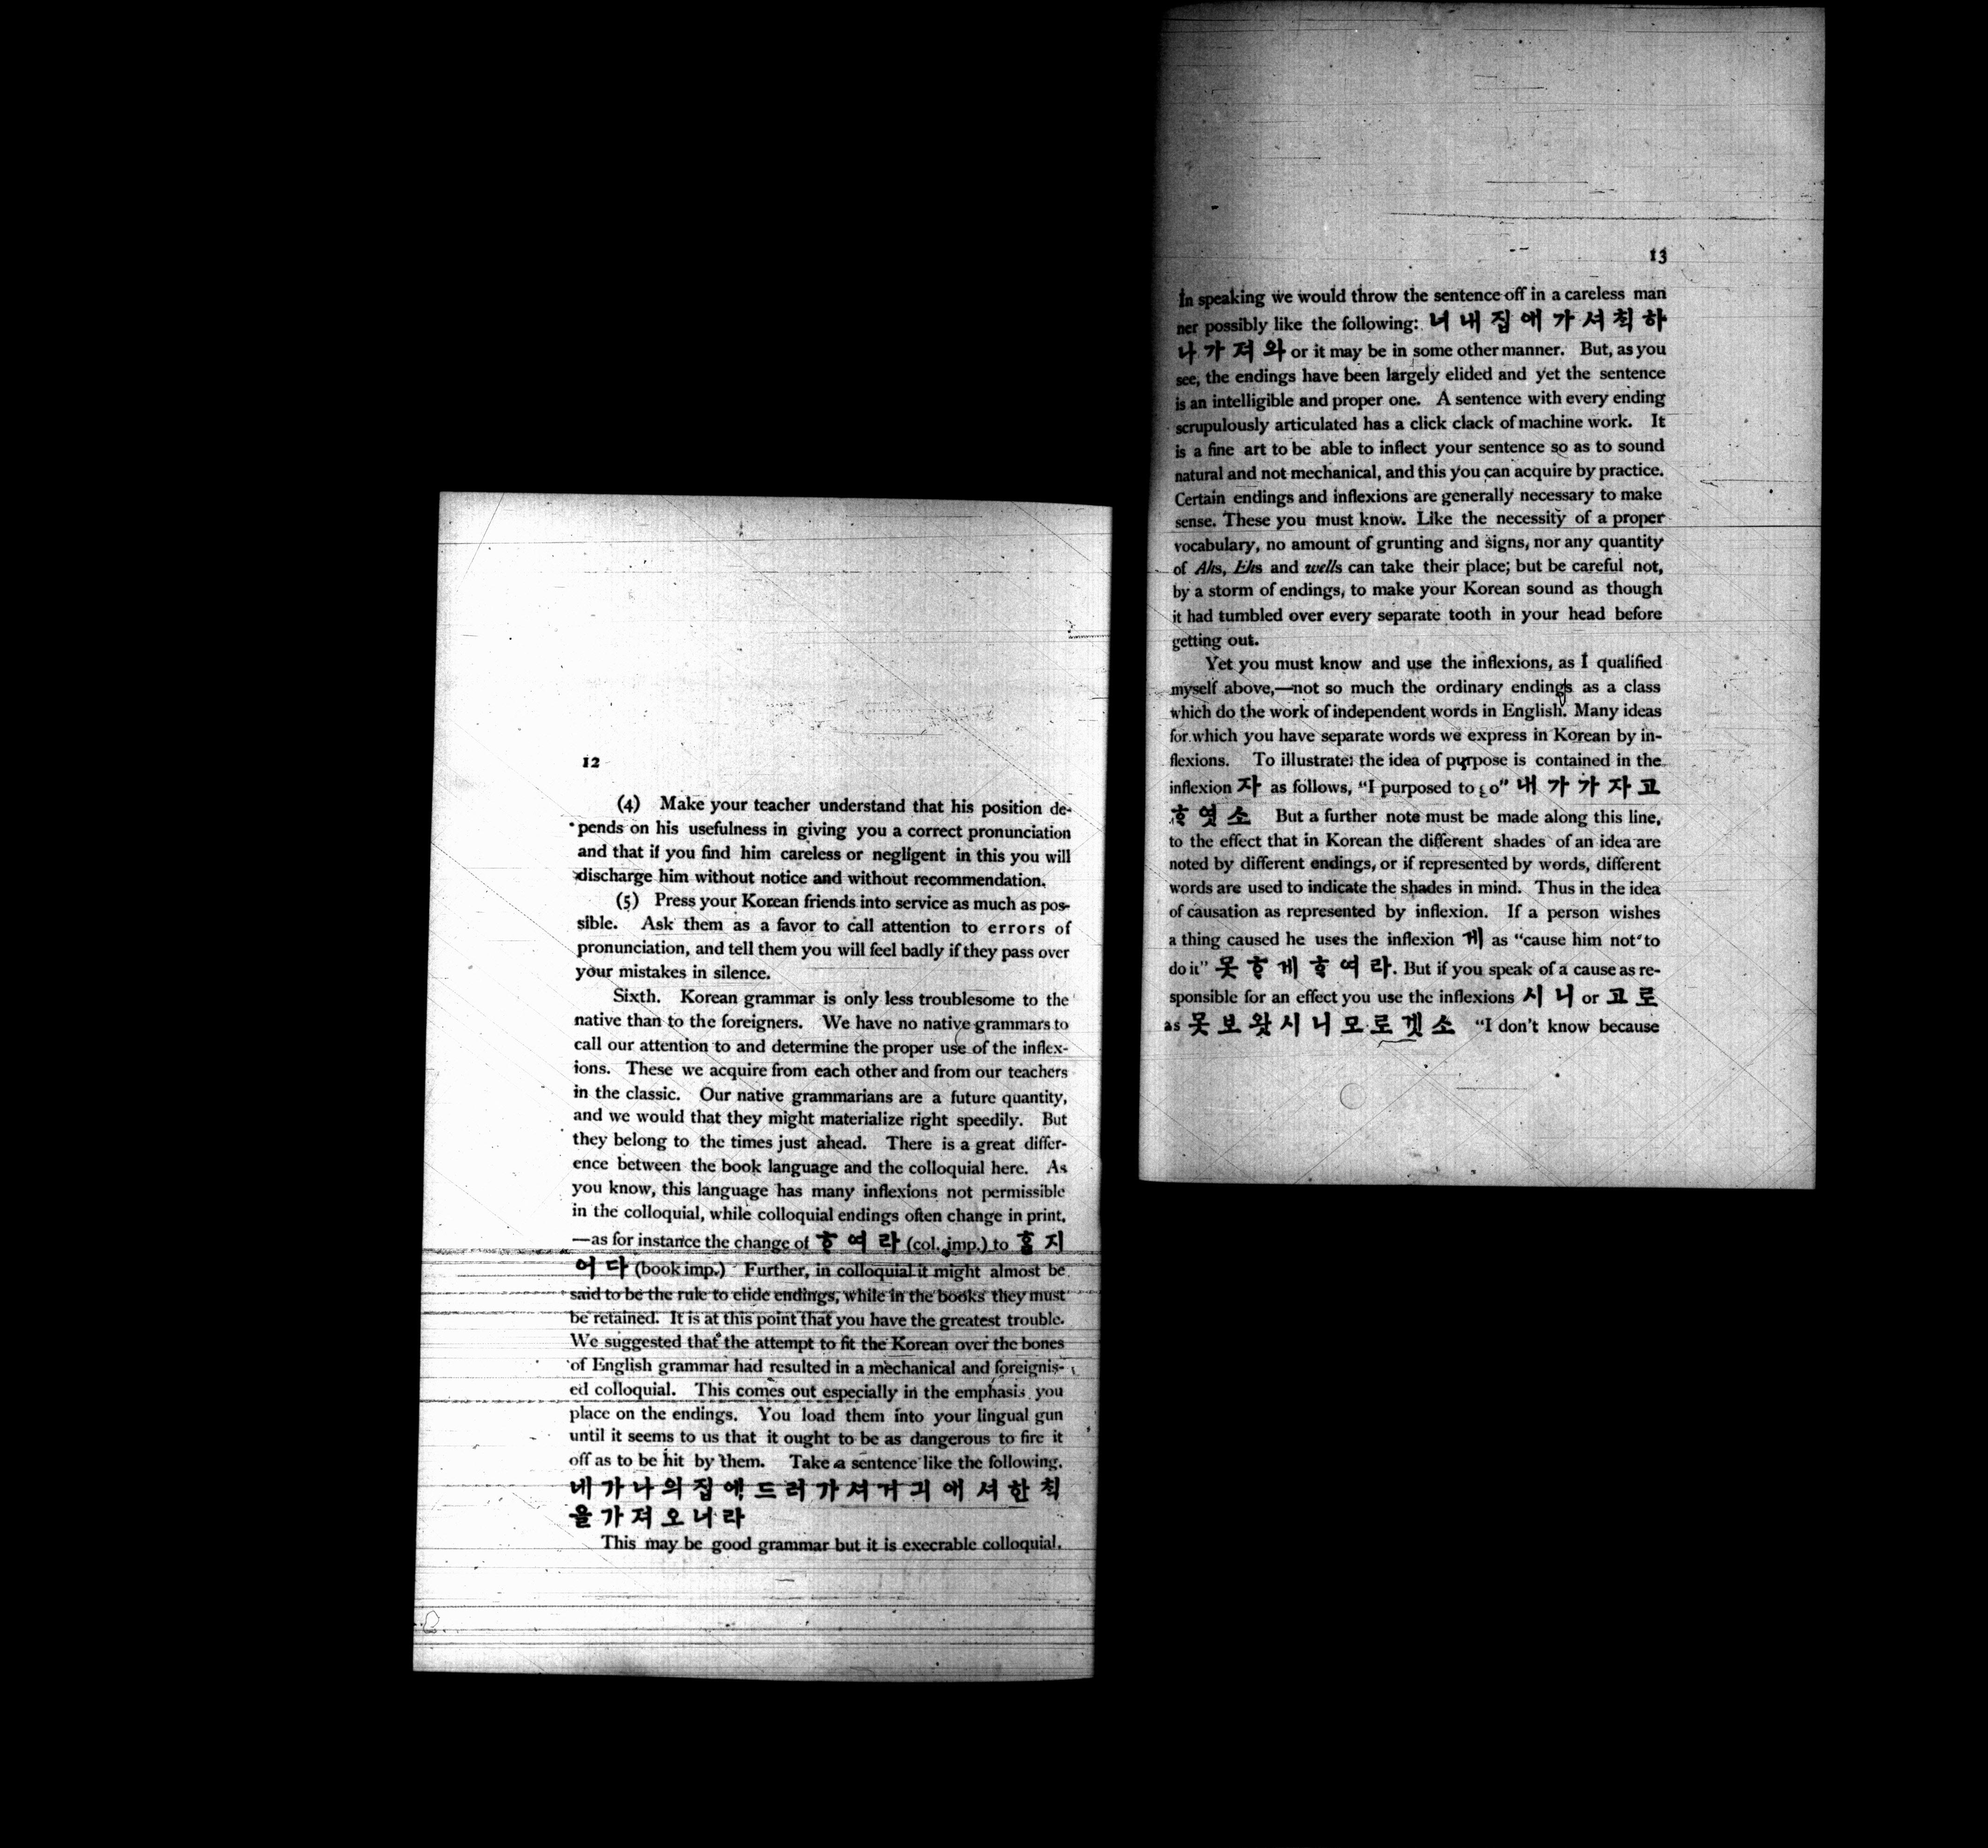 12
(4) Make your teacher understand that his position de-
pends on his usefulness in giving you a correct pronunciation
and that if you find him careless or negligent in this you will
discharge him without notice and without recommendation.
(5) Press your Korean friends into service as much as pos-
sible. Ask them as a favor to call attention to errors of
pronunciation, and tell them you will feel badly if they pass over
your mistakes in silence.
Sixth. Korean grammar is only less troublesome to the
native than to the foreigners. We have no native grammars to
call our attention to and determine the proper use of the inflex-
ions. These we acquire from each other and from our teachers
in the classic. Our native grammarians are a future quantity,
and we would that they might materialize right speedily. But
they belong to the times just ahead. There is a great differ-
ence between the book language and the colloquial here. As
you know, this language has many inflexions not permissible
in the colloquial, while colloquial endings often change in print,
—as for instance the change of ᄒᆞ 여 라 (col. imp.) to ᄒᆞᆯ 지
어 다 (book imp.) Further, in colloquial it might almost be
said to be the rule to elide endings, while in the books they must
be retained. It is at this point that you have the greatest trouble.
We suggested that the attempt to fit the Korean over the bones
of English grammar had resulted in a mechanical and foreignis-
ed colloquial. This comes out especially in the emphasis you
place on the endings. You load them into your lingual gun
until it seems to us that it ought to be as dangerous to fire it
off as to be hit by them. Take a sentence like the following.
네 가 나 의 집 에 드 러 가 셔 거 긔 애 셔 한 ᄎᆡᆨ
을 가 져 오 너 라
This may be good grammar but it is execrable colloquial.
13
In speaking we would throw the sentence off in a careless man
ner possibly like the following: 너 내 집 애 가 셔 ᄎᆡᆨ 하
나 가 져 와 or it may be in some other manner. But, as you
see, the endings have been largely elided and yet the sentence
is an intelligible and proper one. A sentence with every ending
scrupulously articulated has a click clack of machine work. It
is a fine art to be able to inflect your sentence so as to sound
natural and not mechanical, and this you can acquire by practice.
Certain endings and inflexions are generally necessary to make
sense. These you must know. Like the necessity of a proper
vocabulary, no amount of grunting and signs, nor any quantity
of Ahs, Ehs and wells can take their place; but be careful not,
by a storm of endings, to make your Korean sound as though
it had tumbled over every separate tooth in your head before
getting out.
Yet you must know and use the inflexions, as I qualified
myself above,—not so much the ordinary endings as a class
which do the work of independent words in English. Many ideas
for which you have separate words we express in Korean by in-
flexions. To illustrate: the idea of purpose is contained in the
inflexion 자 as follows, "I purposed to go" 내 가 가 자 고
ᄒᆞ 엿 소 But a further note must be made along this line,
to the effect that in Korean the different shades of an idea are
noted by different endings, or if represented by words, different
words are used to indicate the shades in mind. Thus in the idea
of causation as represented by inflexion. If a person wishes
a thing caused he uses the inflexion 게 as "cause him not to
do it" 못 ᄒᆞ 게 ᄒᆞ 여 라. But if you speak of a cause as re-
sponsible for an effect you use the inflexions 시 니 or 고 로
as 못 보 왓 시 니 모 로 겟 소 "I don't know because